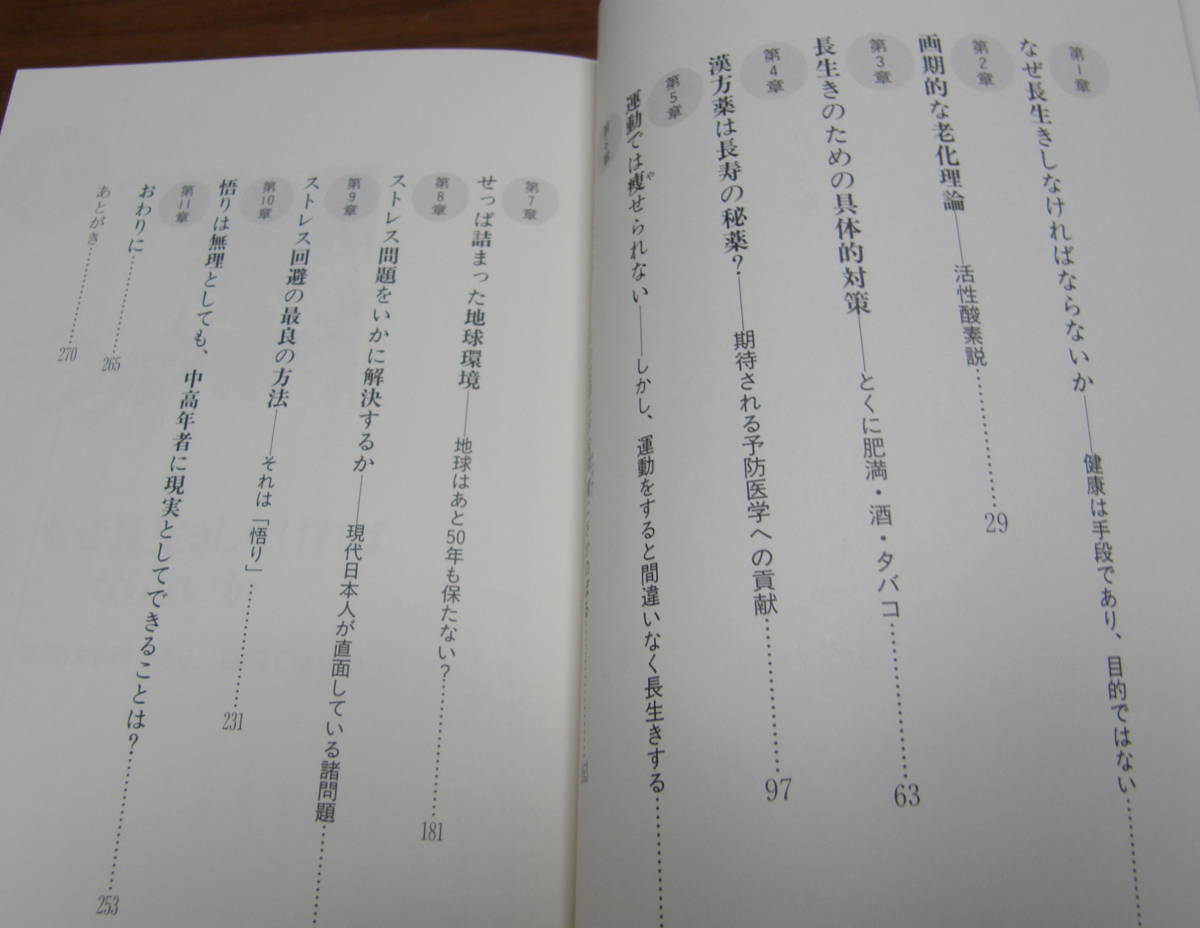 第1章
なぜ長生きしなければならないか——健康は手段であり、目的ではない……
第2章
画期的な老化理論——活性酸素説……29
第3章
長生きのための具体的対策——とくに肥満・酒・タバコ……63
第4章
漢方薬は長寿の秘薬?——期待される予防医学への貢献……97
第5章
運動では痩せられない——しかし、運動をすると間違いなく長生きする……
や
第7章
せっぱ詰まった地球環境——地球はあと50年も保たない?……181
第8章
ストレス問題をいかに解決するか——現代日本人が直面している諸問題……
第9章
ストレス回避の最良の方法——それは「悟り」……231
第10章
悟りは無理としても、中高年者に現実としてできることは?……253
第11章
おわりに……265
あとがき……270